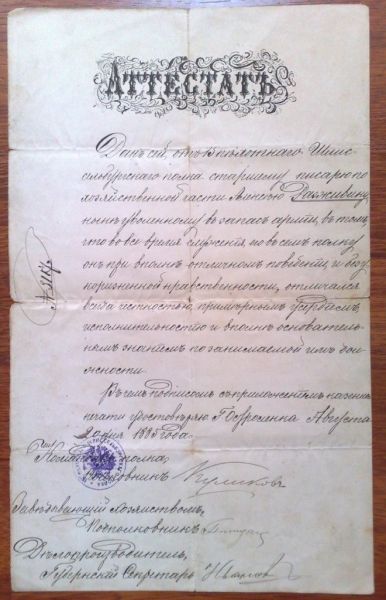 АТТЕСТАТЪ
Данъ сей, отъ 15 пѣхотнаго Шлис-
сельбургскаго полка старшему писарю по
хозяйственной части Алексѣю
нынѣ уволенному въ запасъ арміи, въ томъ,
что во все время служенія его въ семъ полку
онъ при вполнѣ отличномъ поведеніи, и безу
коризненной нравственности, отличался
всегда честностью, примѣрнымъ усердіемъ,
исполнительностью и вполнѣ основатель-
нымъ знаніемъ по занимаемой имъ дол-
жности.
Въ чемъ подписомъ съ приложеніемъ казенной
печати удостовѣряю Августа
дня 1885 года.
Командиръ полка
Полковникъ Куликовъ
Завѣдывающій хозяйствомъ,
Подполковникъ
Дѣлопроизводитель,
Губернскій Секретарь Ивановъ